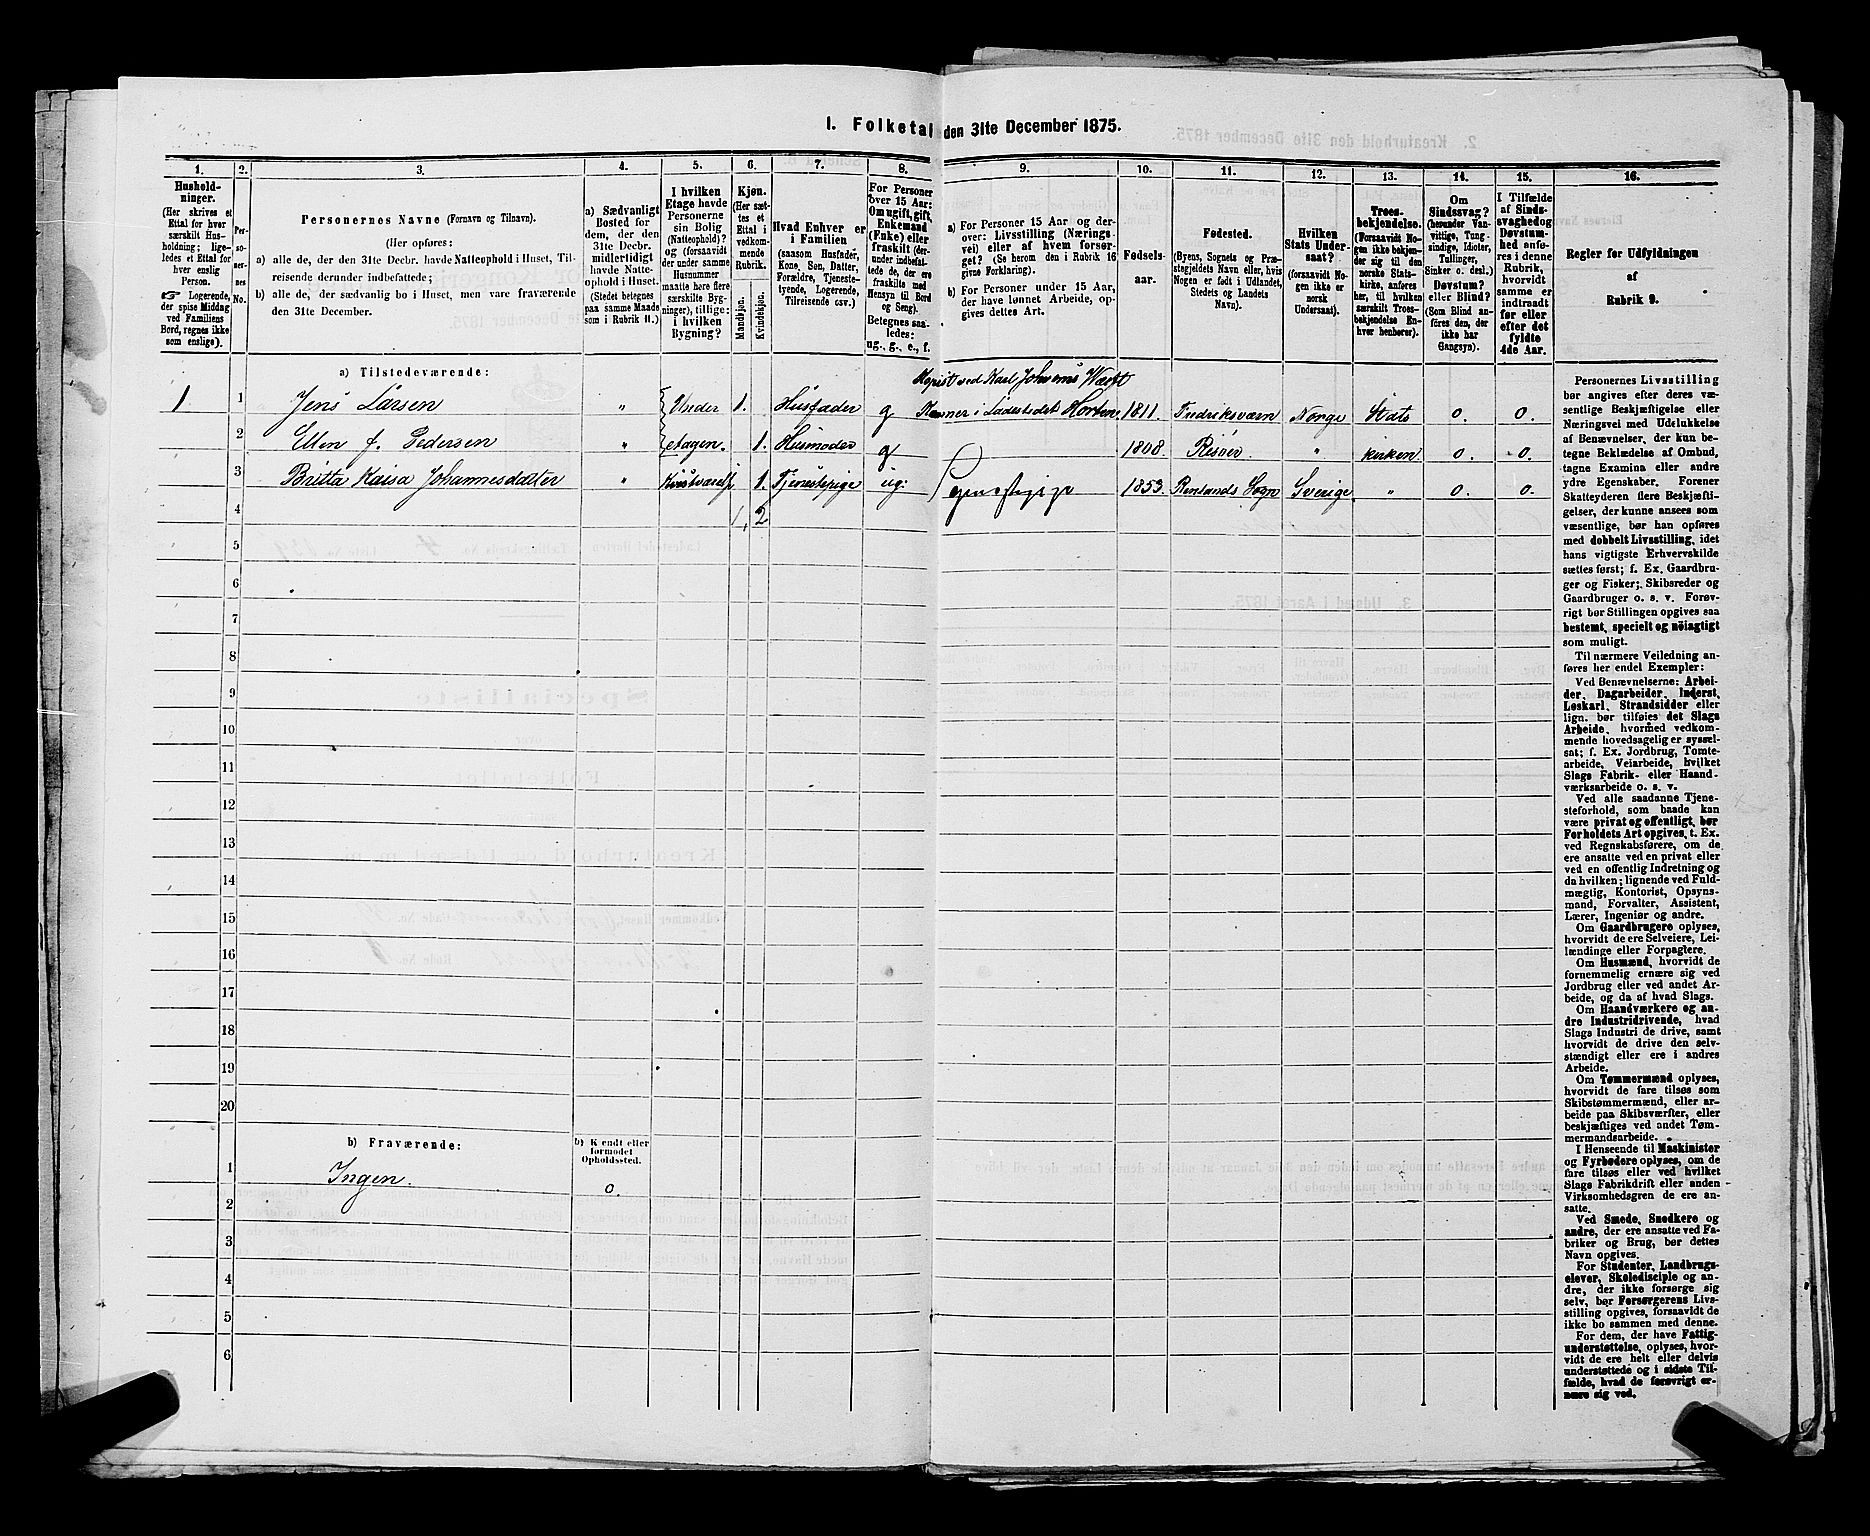 I. Folketal den 31te December 1875.
1. 2. 3. 4. 5. 6. 7. 8. 9. 10. 11. 12. 13. 14. 15. 16.
Hushold-
ninger.
(Her skrives et
Ettal for hver
særskilt Hus-
holdning; lige-
ledes et Ettal for
hver enslig
Person.
☞ Logerende,
der spise Middag
ved Familiens
Bord, regnes ikke
som enslige).
Per-
so-
ner-
nes
No.
Personernes Navne (Fornavn og Tilnavn).
(Her opføres:
a) alle de, der den 31te Decbr. havde Natteophold i Huset, Til-
reisende derunder indbefattede;
b) alle de, der sædvanlig bo i Huset, men vare fraværende
den 31te December.
a) Sædvanligt
Bosted for
dem, der den
31te Decbr.
midlertidigt
havde Natte-
ophold i Huset.
(Stedet betegnes
paa samme Maade
som i Rubrik 11.)
I hvilken
Etage havde
Personerne
sin Bolig
(Natteophold)?
og (forsaavidt
der under samme
Husnummer
maatte høre flere
særskilte Byg-
ninger), tillige:
i hvilken
Bygning?
Kjøn.
(Her sæt-
tes et
Ettal i
vedkom-
mende
Rubrik.
Mandkjøn.
Kvindekjøn.
Hvad Enhver er
i Familien
(saasom Husfader,
Kone, Søn, Datter,
Forældre, Tjeneste-
tyende, Logerende,
Tilreisende osv.)
For Personer
over 15 Aar:
Om ugift, gift,
Enkemand
(Enke) eller
fraskilt (der-
under indbefat-
tede de, der ere
fraskilte med
Hensyn til Bord
og Seng).
Betegnes saa-
ledes:
ug., g., e., f.
a) For Personer 15 Aar og der-
over: Livsstilling (Nærings-
vei) eller af hvem forsør-
get? (Se herom den i Rubrik 16
givne Forklaring).
b) For Personer under 15 Aar,
der have lønnet Arbeide, op-
gives dettes Art.
Fødsels-
aar.
Fødested.
(Byens, Sognets og Præ-
stegjeldets Navn eller, hvis
Nogen er født i Udlandet,
Stedets og Landets
Navn).
Hvilken
Stats Under-
saat?
(forsaavidt No-
gen ikke er
norsk
Undersaat).
Troes-
bekjendelse.
(Forsaavidt No-
gen ikke bekjen-
der sig til den
norske Stats-
kirke, anføres
her, til hvilken
særskilt Troes-
bekjendelse En-
hver henhører).
Om
Sindssvag?
(herunder Van-
vittige, Tung-
sindige, Idioter,
Tullinger,
Sinker o. desl.)
Døvstum?
eller Blind?
(Som Blind an-
føres den, der
ikke har
Gangsyn).
I Tilfælde
af Sinds-
svaghed og
Døvstum-
hed anfø-
res i denne
Rubrik,
hvorvidt
samme er
indtraadt
før eller
efter det
fyldte
4de Aar.
Regler for Udfyldningen
af
Rubrik 9.
a) Tilstedeværende:
Kopist ved Karl Johansværn Værft
1 1 Jens Larsen " Under 1. Husfader g i Ladestedet Horten 1811. Fredriksværn Norge Stats 0. 0.
2 Ellen f. Pedersen " etagen. 1. Husmoder g 1808 Risøer " kirken 0. 0.
3 Britta Kaisa Johannesdatter " 1. Tjenestepige ug: Tjenestepige 1853 Sogn Sverige " 0. 0.
4 1, 2
5
6
7
8
9
10
11
12
13
14
15
16
17
18
19
20
b) Fraværende:
b) Kjendt eller
formodet
Opholdssted.
1 Ingen. 0.
2
3
4
5
6
Personernes Livsstilling
bør angives efter deres væ-
sentlige Beskjæftigelse eller
Næringsvei med Udelukkelse
af Benævnelser, der kun be-
tegne Beklædelse af Ombud,
tagne Examina eller andre
ydre Egenskaber. Forener
Skatteyderen flere Beskjæfti-
gelser, der kunne ansees som
væsentlige, bør han opføres
med dobbelt Livsstilling, idet
hans vigtigste Erhvervskilde
sættes først; f. Ex. Gaardbru-
ger og Fisker; Skibsreder og
Gaardbruger o. s. v. Forøv-
rigt bør Stillingen opgives saa
bestemt, specielt og nøiagtigt
som muligt.
Til nærmere Veiledning an-
føres her endel Exempler:
Ved Benævnelserne: Arbei-
der, Dagarbeider, Inderst,
Løskarl, Strandsidder eller
lign. bør tilføies det Slags
Arbeide, hvormed vedkom-
mende hovedsagelig er syssel-
sat; f. Ex. Jordbrug, Tomte-
arbeide, Veiarbeide, hvilket
Slags Fabrik- eller Haand-
værksarbeide o. s. v.
Ved alle saadanne Tjene-
steforhold, som baade kan
være privat og offentligt, bør
Forholdets Art opgives, t. Ex.
ved Regnskabsførere, om de
ere ansatte ved en privat eller
ved en offentlig Indretning og
da hvilken; lignende ved Fuld-
mægtig, Kontorist, Opsyns-
mand, Forvalter, Assistent,
Lærer, Ingeniør og andre.
Om Gaardbrugere oplyses,
hvorvidt de ere Selveiere, Lei-
lændinge eller Forpagtere.
Om Husmænd, hvorvidt de
fornemmelig ernære sig ved
Jordbrug eller ved andet Ar-
beide, og da af hvad Slags.
Om Haandværkere og an-
dre Industridrivende, hvad
Slags Industri de drive, samt
hvorvidt de drive den selv-
stændigt eller ere i andres
Arbeide.
Om Tømmermænd oplyses,
hvorvidt de fare tilsøs som
Skibstømmermænd, eller ar-
beide paa Skibsværfter, eller
beskjæftiges ved andet Tøm-
mermandsarbeide.
I Henseende til Maskinister
og Fyrbødere oplyses, om de
fare tilsøs eller ved hvilket
Slags Fabrikdrift eller anden
Virksomhedsgren de ere an-
satte.
Ved Smede, Snedkere og
andre, der ere ansatte ved Fa-
briker og Brug, bør dettes
Navn opgives.
For Studenter, Landbrugs-
elever, Skoledisciple og an-
dre, der ikke forsørge sig
selv, bør Forsørgerens Livs-
stilling opgives, forsaavidt de
ikke bo sammen med denne.
For dem, der have Fattig-
understøttelse, oplyses, hvor-
vidt de ere helt eller delvis
understøttede og i sidste Til-
fælde, hvad de forøvrigt er-
nære sig ved.